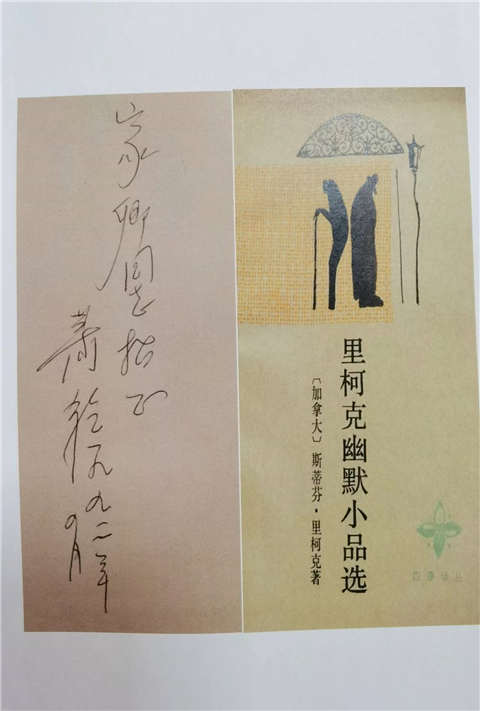 家卿同志指正
萧乾 一九九二年
九月
里柯克幽默小品选
〔加拿大〕斯蒂芬·里柯克著